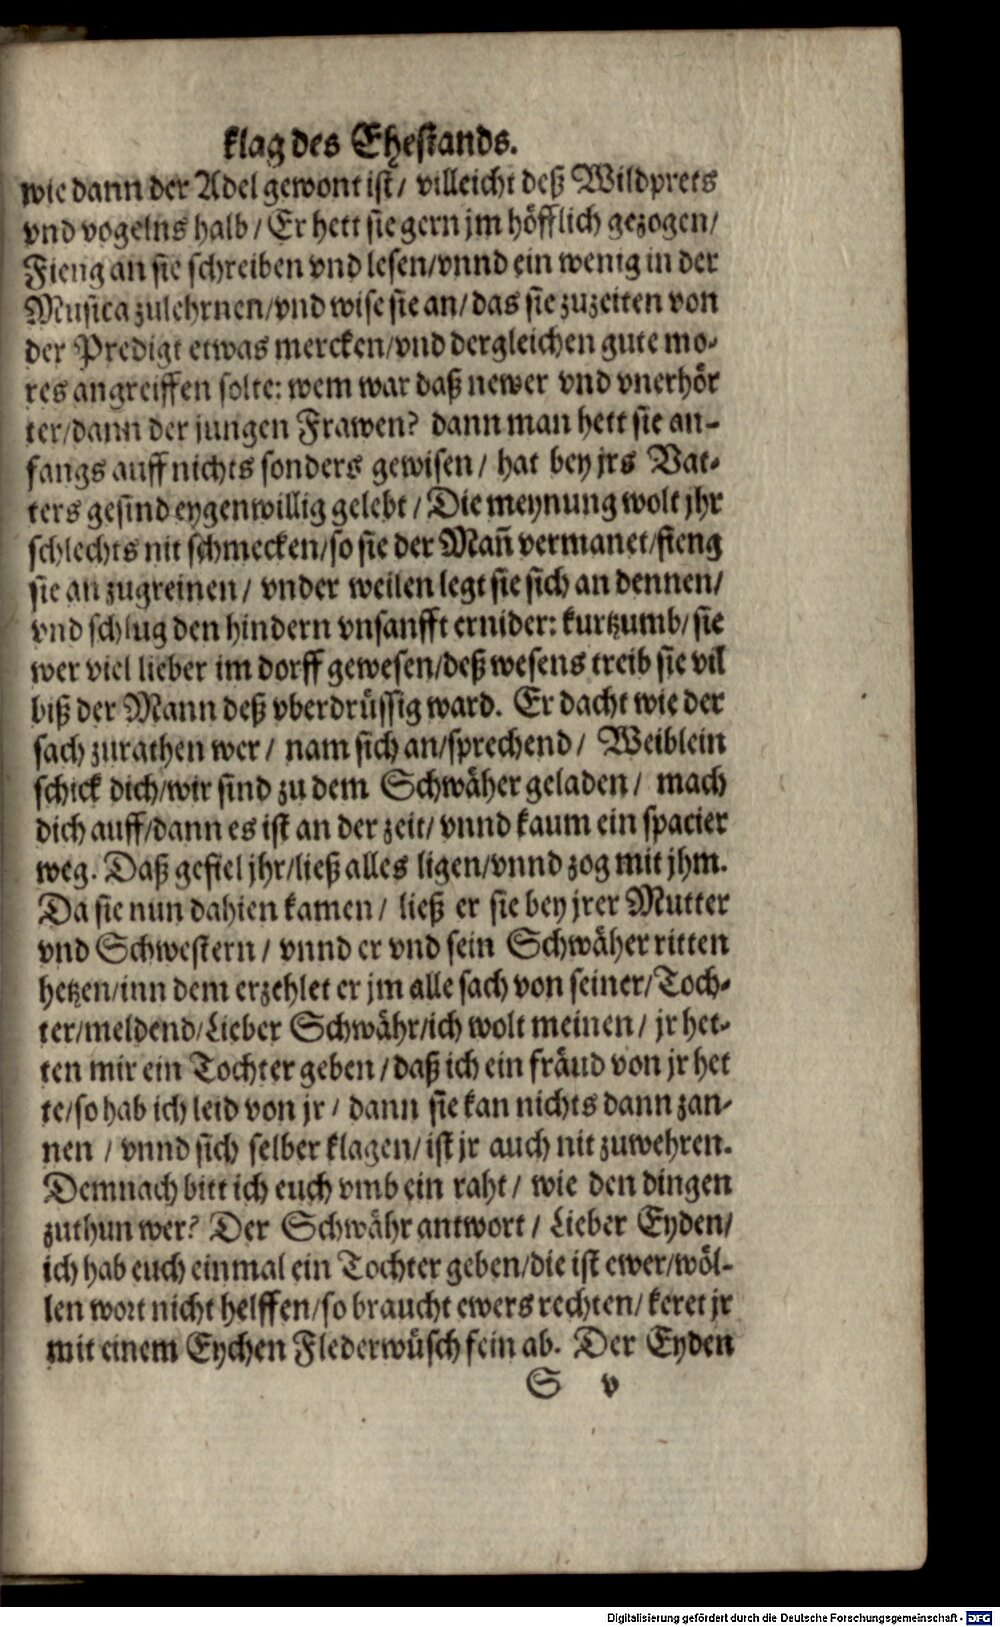 klag des Ehestands.
wie dann der Adel gewont ist/ villeicht deß Wildprets
vnd vogelns halb/ Er hett sie gern jm höfflich gezogen/
Fieng an sie schreiben vnd lesen/vnnd ein wenig in der
Musica zulehrnen/vnd wise sie an/das sie zuzeiten von
der Predigt etwas mercken/vnd dergleichen gute mo-
res angreiffen solte: wem war daß newer vnd vnerhör
ter/dann der jungen Frawen? dann man hett sie an-
fangs auff nichts sonders gewisen/ hat bey jrs Vat-
ters gesind eygenwillig gelebt/ Die meynung wolt jhr
schlechts nit schmecken/so sie der Mañ vermanet/fieng
sie an zugreinen/ vnder weilen legt sie sich an dennen/
vnd schlug den hindern vnsanfft ernider: kurtzumb/ sie
wer viel lieber im dorff gewesen/deß wesens treib sie vil
biß der Mann deß vberdrüssig ward. Er dacht wie der
sach zurathen wer/ nam sich an/sprechend/ Weiblein
schick dich/wir sind zu dem Schwäher geladen/ mach
dich auff/dann es ist an der zeit/ vnnd kaum ein spacier
weg. Daß gefiel jhr/ließ alles ligen/vnnd zog mit jhm.
Da sie nun dahien kamen/ ließ er sie bey jrer Mutter
vnd Schwestern/ vnnd er vnd sein Schwäher ritten
hetzen/inn dem erzehlet er jm alle sach von seiner/Toch-
ter/meldend/Lieber Schwähr/ich wolt meinen/ jr het-
ten mir ein Tochter geben/daß ich ein fräud von jr het
te/so hab ich leid von jr/ dann sie kan nichts dann zan-
nen / vnnd sich selber klagen/ist jr auch nit zuwehren.
Demnach bitt ich euch vmb ein raht/ wie den dingen
zuthun wer? Der Schwähr antwort/ Lieber Eyden/
ich hab euch einmal ein Tochter geben/die ist ewer/wöl-
len wort nicht helffen/so braucht ewers rechten/keret jr
mit einem Eychen Flederwüsch fein ab. Der Eyden
S v
Digitalisierung gefördert durch die Deutsche Forschungsgemeinschaft - DFG